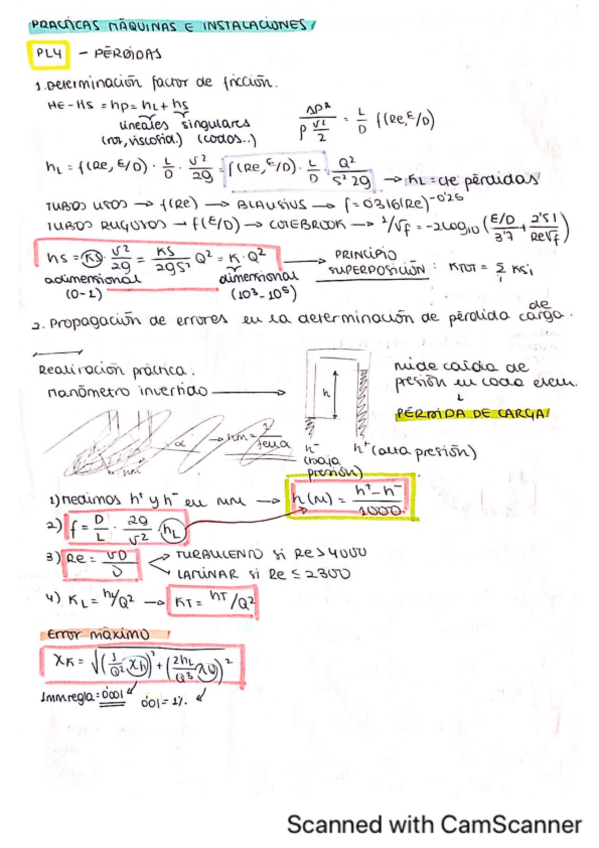 PRACTICAS MÁQUINAS E INSTALACIONES
PL4 - PÉRDIDAS
1. Determinación factor de fricción.
HE - HS = hp = hL + hs
lineales singulares
(roz, viscosid.) (codos..)
ΔP* / (ρ v²/2) = L/D f(Re, ε/D)
hL = f(Re, ε/D) · L/D · v²/2g = f(Re, ε/D) · L/D · Q²/(S² 2g) → KL = cte pérdidas
TUBOS LISOS → f(Re) → BLASIUS → f = 0'316(Re)^-0'25
TUBOS RUGOSOS → f(ε/D) → COLEBROOK → 1/√f = -2log10 (ε/D / 3'7 + 2'51 / Re√f)
hs = Ks · v²/2g = Ks/2gS² Q² = K · Q² → PRINCIPIO SUPERPOSICIÓN : KTOT = Σi Ksi
adimensional (0-1)
dimensional (10³ - 10⁵)
2. Propagación de errores en la determinación de pérdida de carga.
Realización práctica:
manómetro invertido →
h
mide caída de
presión en cada elem.
↓
PÉRDIDA DE CARGA
h⁻ (baja presión)
h⁺ (alta presión)
1) Medimos h⁺ y h⁻ en mm → h(m) = (h⁺ - h⁻) / 1000
2) f = D/L · 2g/v² · hL
3) Re = vD/υ
TURBULENTO si Re > 4000
LAMINAR si Re ≤ 2300
4) KL = hL/Q² → KT = hT/Q²
Error máximo
XK = √((1/Q² Xh)² + (2hL/Q³ XQ)²)
1mm regla = 0'001
0'01 = 1%.
Scanned with CamScanner